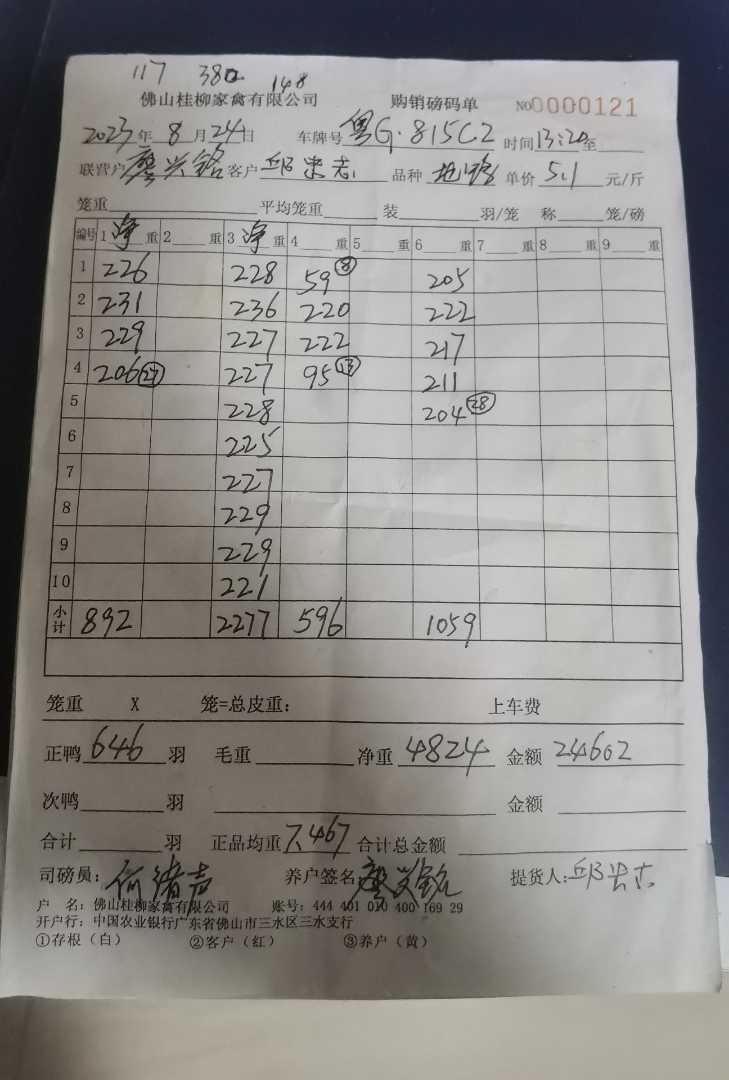 117 380 148
佛山桂柳家禽有限公司 购销磅码单 NO0000121
2023年 8 月 24日 车牌号 粤G·815C2 时间 13:20 至
联营户 廖兴铭 客户 邱 志 品种 单价 5.1 元/斤
笼重 平均笼重 装 羽/笼 称 笼/磅
编号 1 净 重 2 重 3 净 重 4 重 5 重 6 重 7 重 8 重 9 重
1 226 228 59 ⑧ 205
2 231 236 220 222
3 229 227 222 217
4 206 227 95 211
5 228 204 28
6 225
7 227
8 229
9 229
10 221
小计 892 2277 596 1059
笼重 X 笼=总皮重: 上车费
正鸭 646 羽 毛重 净重 4824 金额 24602
次鸭 羽 金额
合计 羽 正品均重 7.467 合计总金额
司磅员: 何 声 养户签名 廖兴铭 提货人: 邱 志
户 名: 佛山桂柳家禽有限公司 账号: 444 401 010 400 169 29
开户行: 中国农业银行广东省佛山市三水区三水支行
①存根（白） ②客户（红） ③养户（黄）